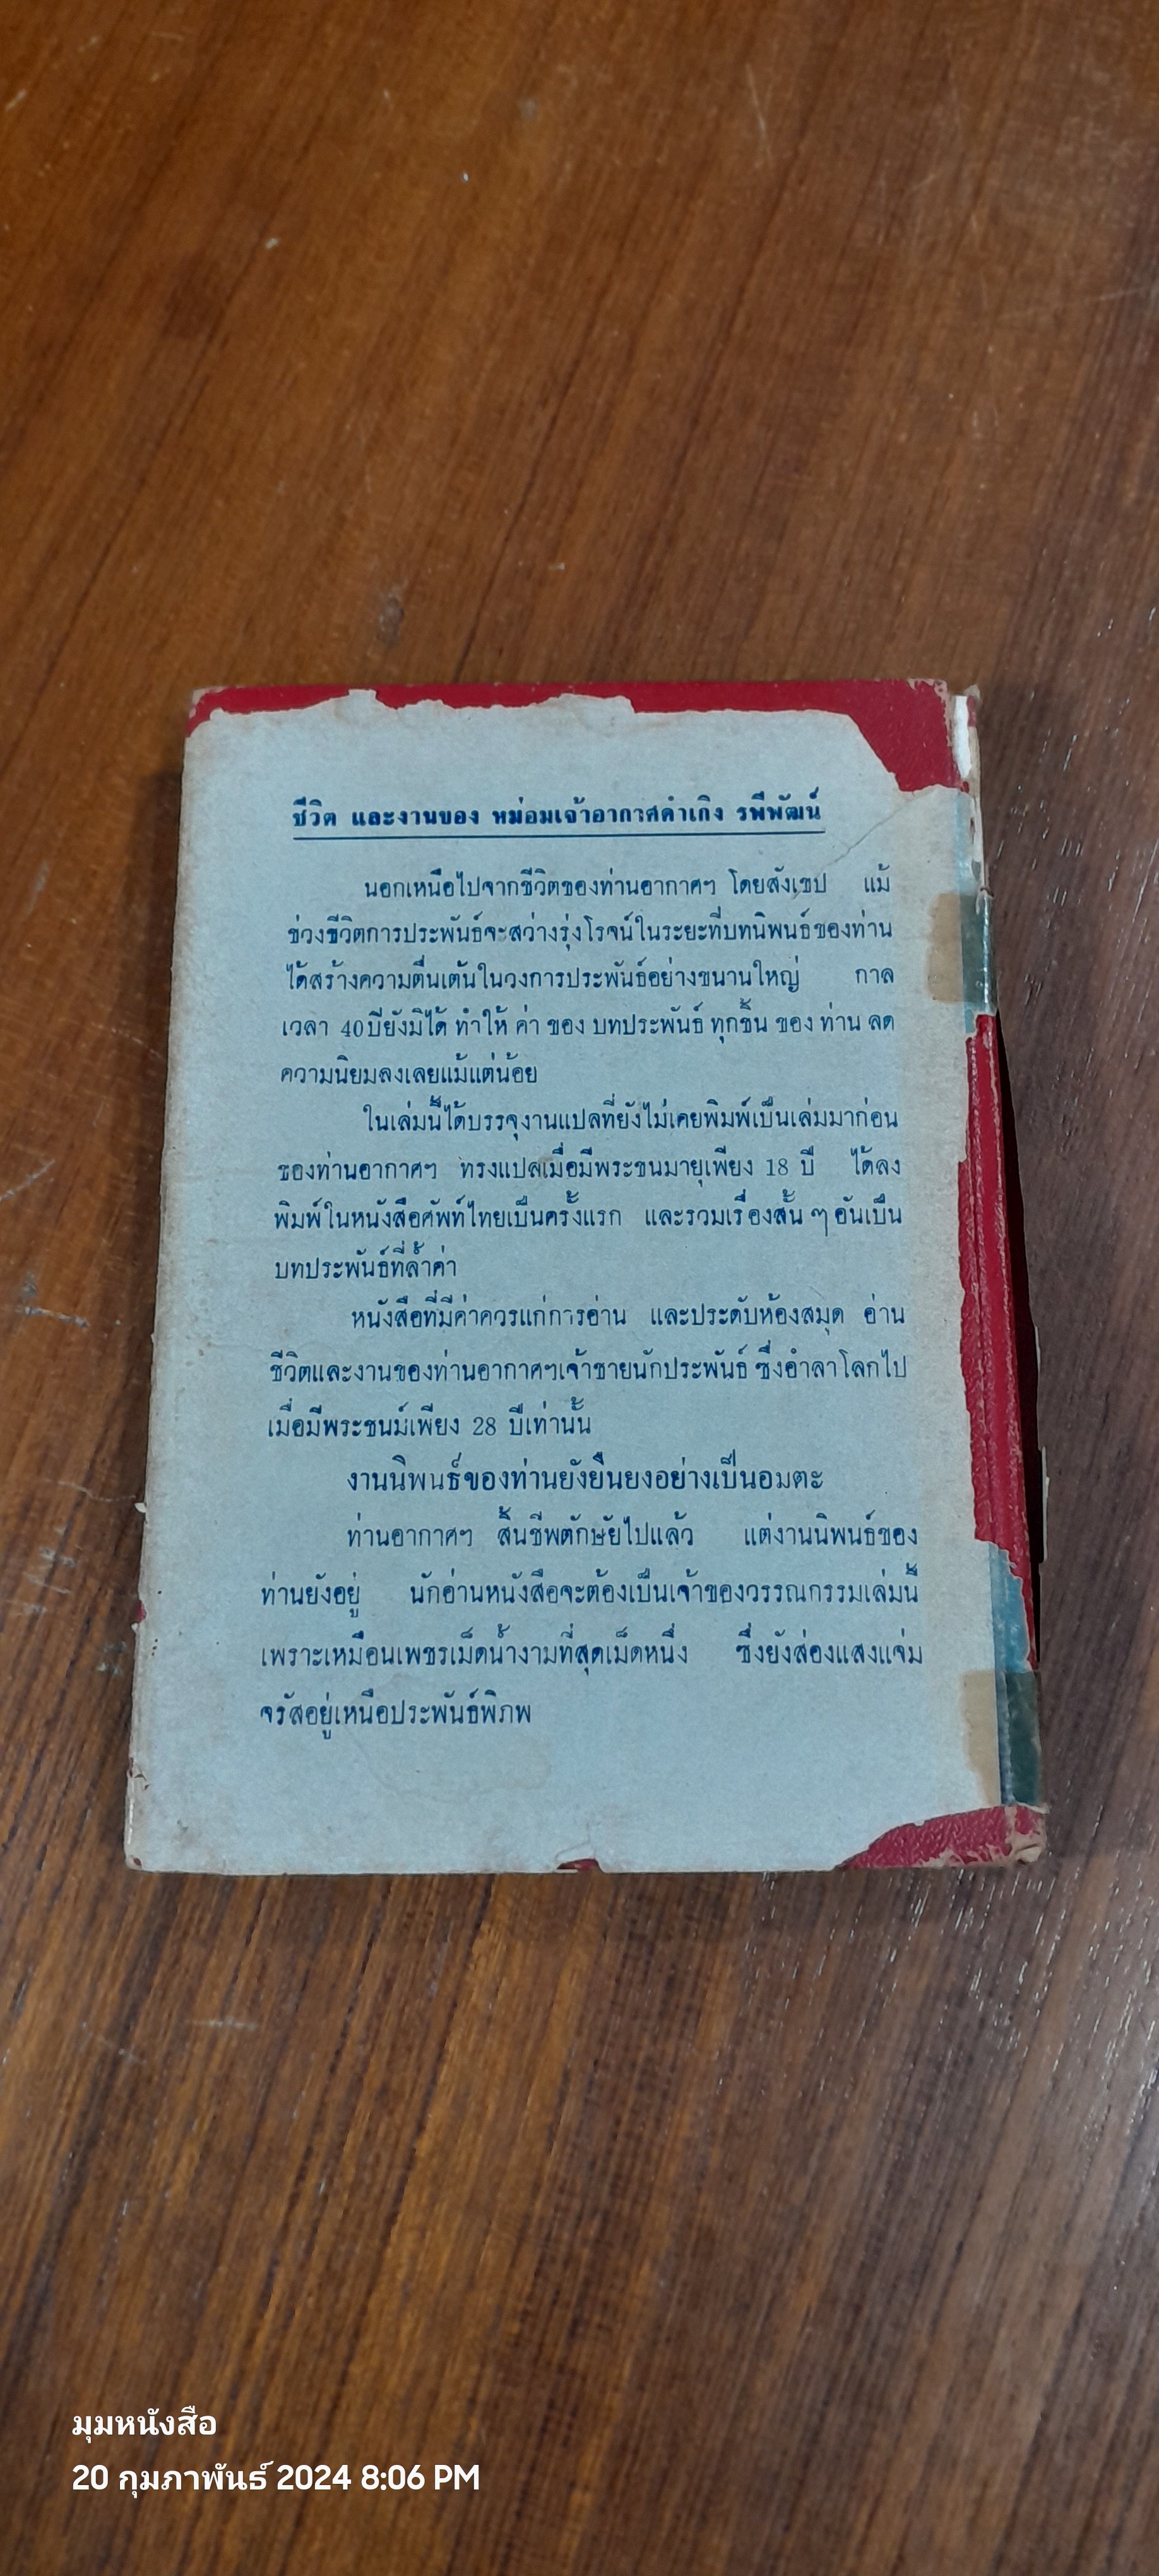 ชีวิต และงานของ หม่อมเจ้าอากาศดำเกิง รพีพัฒน์
นอกเหนือไปจากชีวิตของท่านอากาศฯ โดยสังเขป แม้
ช่วงชีวิตการประพันธ์จะสว่างรุ่งโรจน์ในระยะที่บทนิพนธ์ของท่าน
ได้สร้างความตื่นเต้นในวงการประพันธ์อย่างขนานใหญ่ กาล
เวลา 40 ปียังมิได้ ทำให้ ค่า ของ บทประพันธ์ ทุกชิ้น ของ ท่าน ลด
ความนิยมลงเลยแม้แต่น้อย
ในเล่มนี้ได้บรรจุงานแปลที่ยังไม่เคยพิมพ์เป็นเล่มมาก่อน
ของท่านอากาศฯ ทรงแปลเมื่อมีพระชนมายุเพียง 18 ปี ได้ลง
พิมพ์ในหนังสือศัพท์ไทยเป็นครั้งแรก และรวมเรื่องสั้น ๆ อันเป็น
บทประพันธ์ที่ล้ำค่า
หนังสือที่มีค่าควรแก่การอ่าน และประดับห้องสมุด อ่าน
ชีวิตและงานของท่านอากาศฯเจ้าชายนักประพันธ์ ซึ่งอำลาโลกไป
เมื่อมีพระชนม์เพียง 28 ปีเท่านั้น
งานนิพนธ์ของท่านยังยืนยงอย่างเป็นอมตะ
ท่านอากาศฯ สิ้นชีพตักษัยไปแล้ว แต่งานนิพนธ์ของ
ท่านยังอยู่ นักอ่านหนังสือจะต้องเป็นเจ้าของวรรณกรรมเล่มนี้
เพราะเหมือนเพชรเม็ดน้ำงามที่สุดเม็ดหนึ่ง ซึ่งยังส่องแสงแจ่ม
จรัสอยู่เหนือประพันธ์พิภพ
มุมหนังสือ
20 กุมภาพันธ์ 2024 8:06 PM